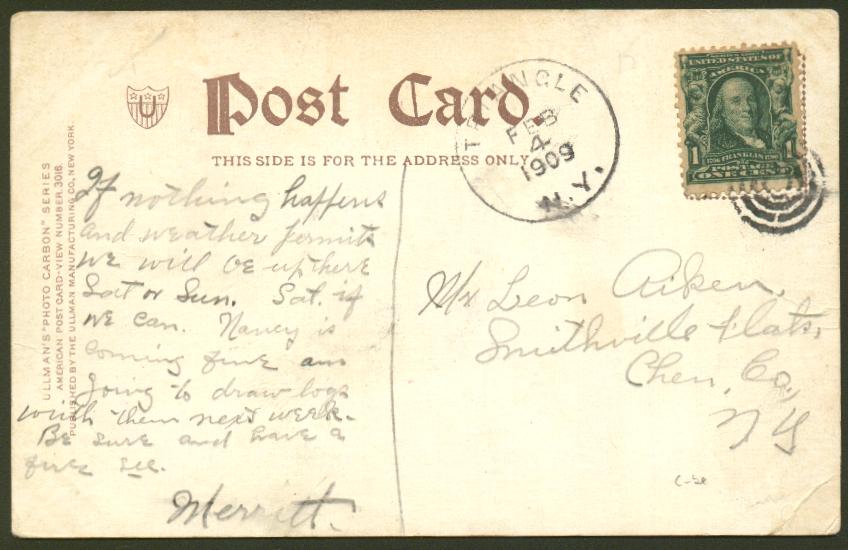 Post Card.
THIS SIDE IS FOR THE ADDRESS ONLY
U
TRIANGLE
FEB
4
1909
N.Y.
SERIES 1902
UNITED STATES OF
AMERICA
1 1706 FRANKLIN 1790 1
POSTAGE
ONE CENT
ULLMAN'S "PHOTO CARBON" SERIES
AMERICAN POST CARD-VIEW NUMBER, 3016.
PUBLISHED BY THE ULLMAN MANUFACTURING CO., NEW YORK.
If nothing happens
and weather permits
we will be up there
Sat or Sun. Sat. if
we can. Nancy is
coming fine am
going to draw logs
with them next week.
Be sure and have a
fire
Merritt.
Mr Leon Aiken,
Smithville Flats,
Chen. Co,
N Y